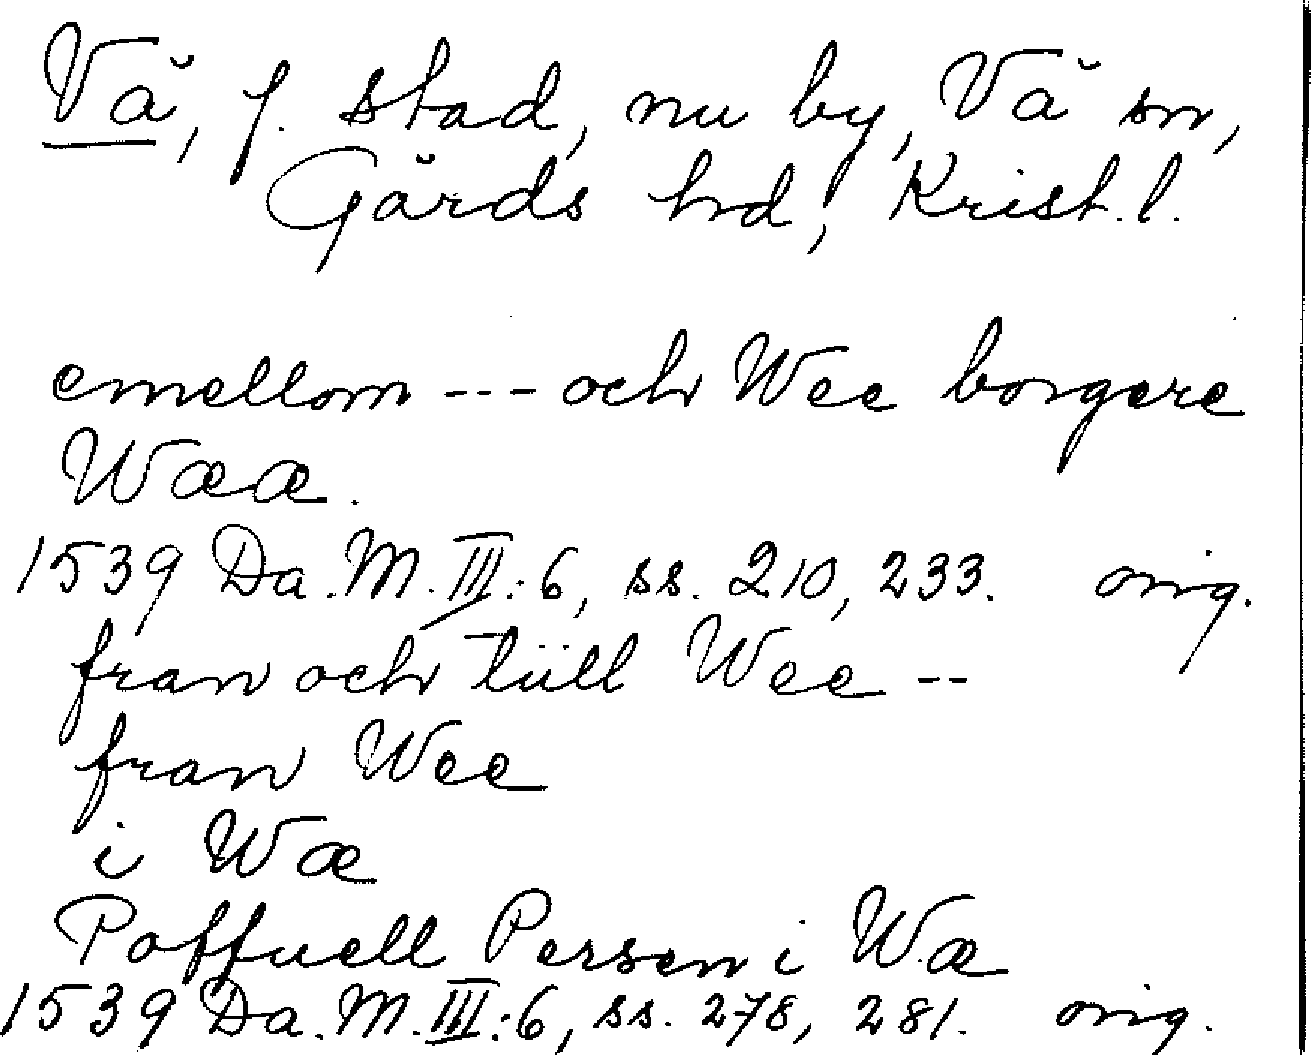 Vä, f. stad, nu by, Vä sn,
Gärds hd, Krist. l.
emellom --- och Wee borgere
Wææ.
1539 Da. M. III:6, ss. 210, 233. orig.
fran och tüll Wee --
fran Wee
i Wæ
Poffuell Persen i Wæ
1539 Da. M. III:6, ss. 278, 281. orig.